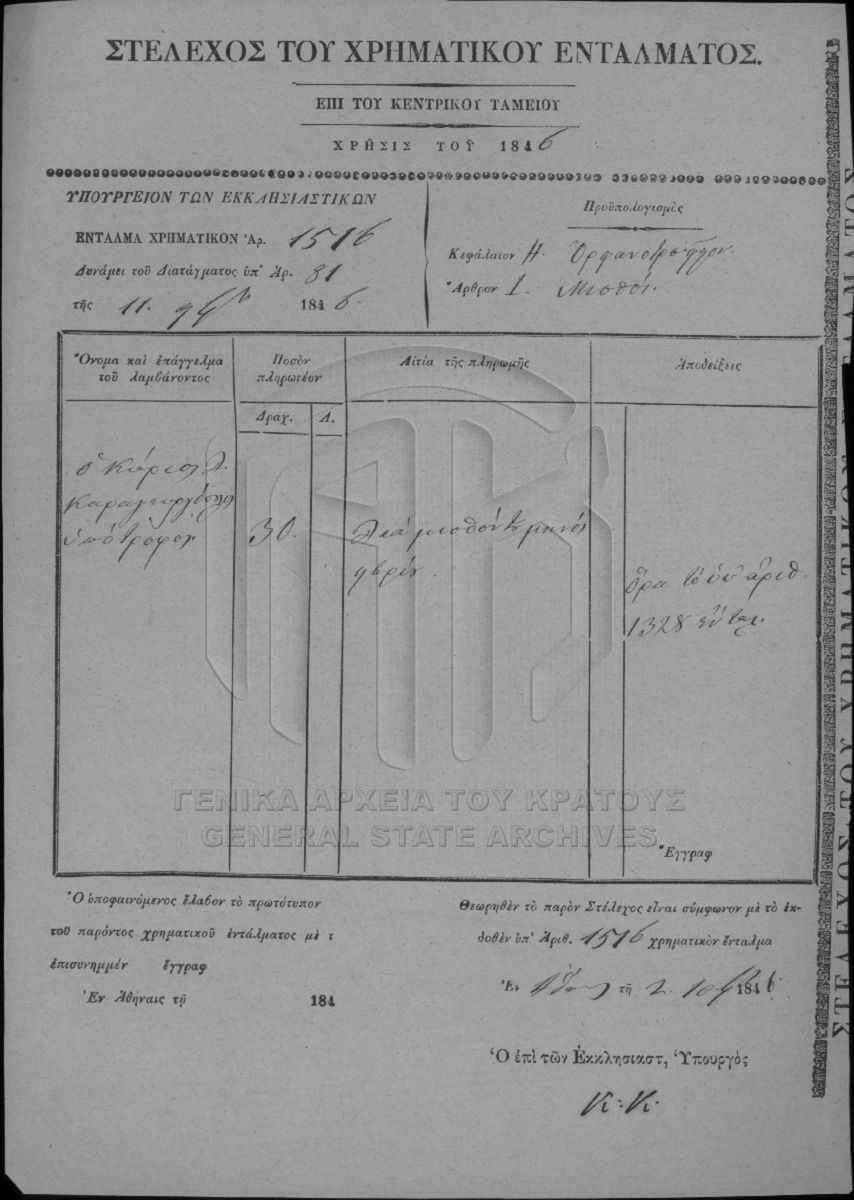 ΣΤΕΛΕΧΟΣ ΤΟΥ ΧΡΗΜΑΤΙΚΟΥ ΕΝΤΑΛΜΑΤΟΣ.
ΕΠΙ ΤΟΥ ΚΕΝΤΡΙΚΟΥ ΤΑΜΕΙΟΥ
ΧΡΗΣΙΣ ΤΟΥ 1846
ΥΠΟΥΡΓΕΙΟΝ ΤΩΝ ΕΚΚΛΗΣΙΑΣΤΙΚΩΝ
ΕΝΤΑΛΜΑ ΧΡΗΜΑΤΙΚΟΝ Ἀρ. 1516
Δυνάμει τοῦ Διατάγματος ὑπ' Ἀρ. 81
τῆς 11. 1846.
Προϋπολογισμὸς
Κεφάλαιον Η. Ὀρφανοτροφεῖον.
Ἄρθρον 1. Μισθοί.
Ὄνομα καὶ ἐπάγγελμα
τοῦ λαμβάνοντος
Ποσὸν
πληρωτέον
Αἰτία τῆς πληρωμῆς
Ἀποδείξεις
Δραχ. Λ.
ὁ Κύριος Λ.
ὑπότροφος
30.
Διὰ μισθόν τοῦ μηνὸς
9βρίου.
ὅρα τὸ ὑπ' ἀριθ.
1328 ἔνταλ.
Ἔγγραφ
Ὁ ὑποφαινόμενος ἔλαβον τὸ πρωτότυπον
τοῦ παρόντος χρηματικοῦ ἐντάλματος μὲ τ
ἐπισυνημμέν ἔγγραφ
Ἐν Ἀθήναις τῇ 184
Θεωρηθὲν τὸ παρὸν Στέλεχος εἶναι σύμφωνον μὲ τὸ ἐκ-
δοθὲν ὑπ' Ἀριθ. 1516 χρηματικὸν ἔνταλμα
Ἐν τῇ 2. 1846.
Ὁ ἐπὶ τῶν Ἐκκλησιαστ, Ὑπουργὸς
Κ. Κ.
ΓΕΝΙΚΑ ΑΡΧΕΙΑ ΤΟΥ ΚΡΑΤΟΥΣ
GENERAL STATE ARCHIVES